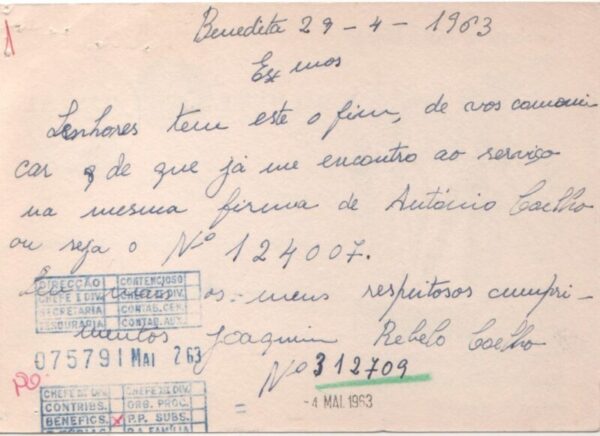 Benedita 29-4-1963
Exmos
Senhores tem este o fim, de vos comoni
car de que já me encontro ao serviço
na mesma firma de António Coelho
ou seja o Nº 124007.
os meus respeitosos cumpri
mentos Joaquim Rebelo Coelho
Nº 312709
DIRECÇÃO CONTENCIOSO
CHEFE I DIV. DIV.
SECRETARIA CONTAB. CEN.
TESOURARIA CONTAB. AUX.
075791 MAI 2 63
CHEFE DIV. CHEFE DIV.
CONTRIBS. ORG. PROC.
BENEFICS. x P.P. SUBS.
FAMÍLIA
-4 MAI. 1963